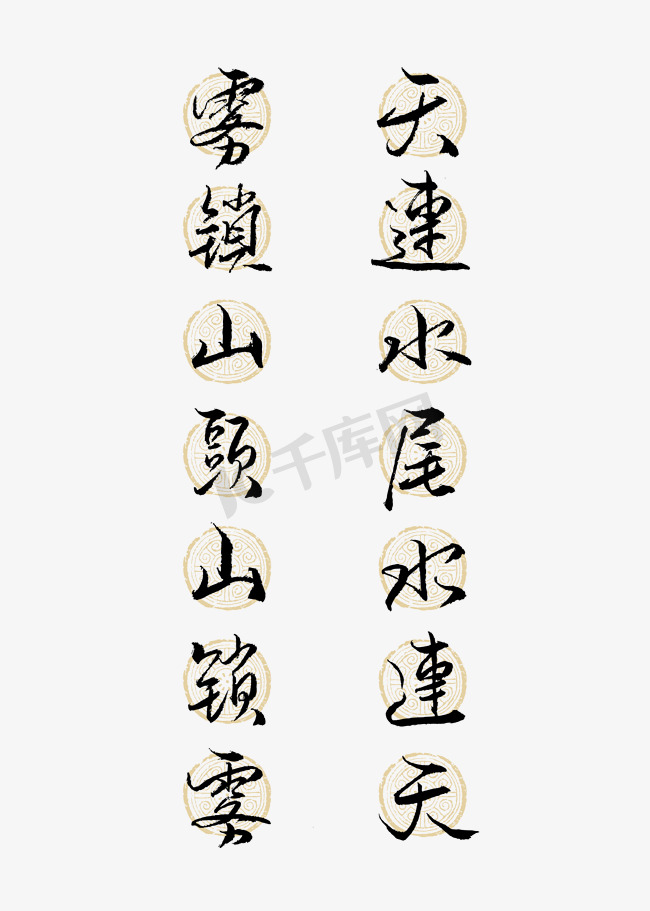 天連水尾水連天
雾鎖山頭山鎖雾
千库网